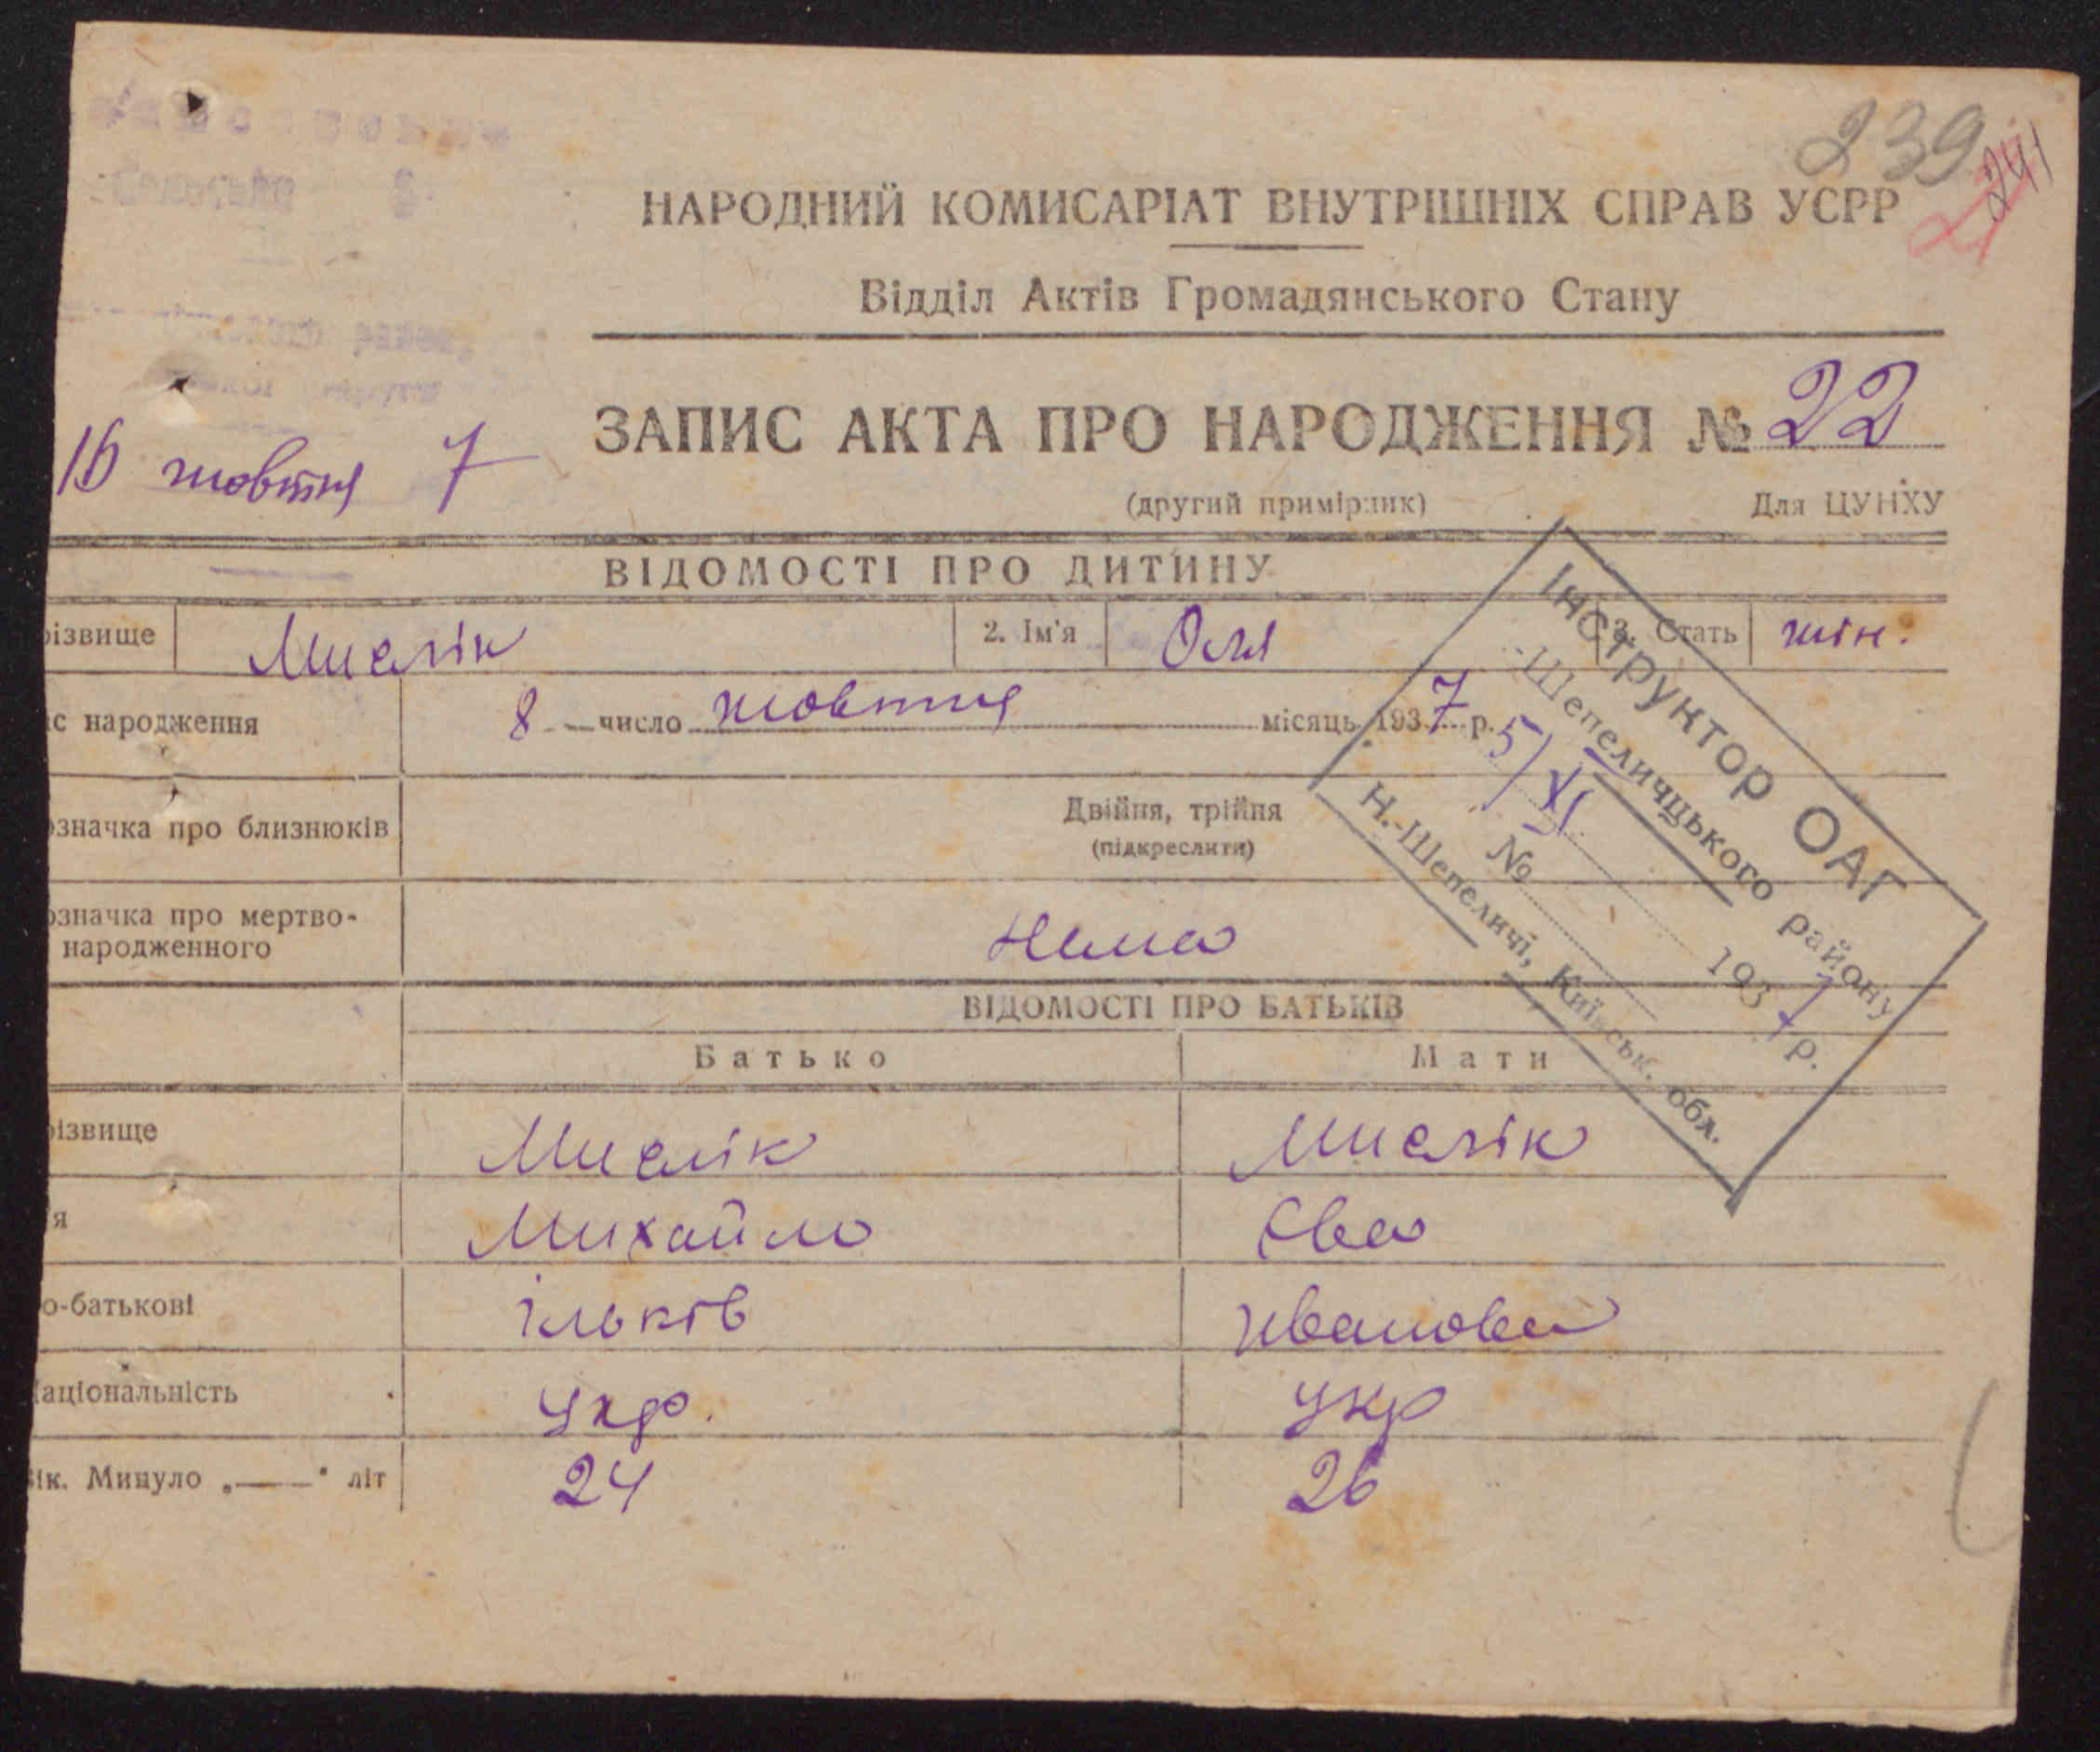 239
241
НАРОДНИЙ КОМИСАРІАТ ВНУТРІШНІХ СПРАВ УСРР
Відділ Актів Громадянського Стану
ЗАПИС АКТА ПРО НАРОДЖЕННЯ № 22
16 жовтня 7
(другий примірник) Для ЦУНХУ
ВІДОМОСТІ ПРО ДИТИНУ
різвище Мислік 2. Ім'я Оля 3. Стать жін.
с народження 8 число жовтня місяць 1937 р.
означка про близнюків Двійня, трійня
(підкреслити)
означка про мертво-
народженного Нема
Інструктор ОАГ
-Шепеличцького району
5/XI
№ 1937 р.
Н.-Шепеличі, Київськ. обл.
ВІДОМОСТІ ПРО БАТЬКІВ
Батько Мати
різвище Мислік Мислік
я Михайло Єва
о-батькові Ільків Иванова
аціональність укр. укр
ік. Минуло „——" літ 24 26